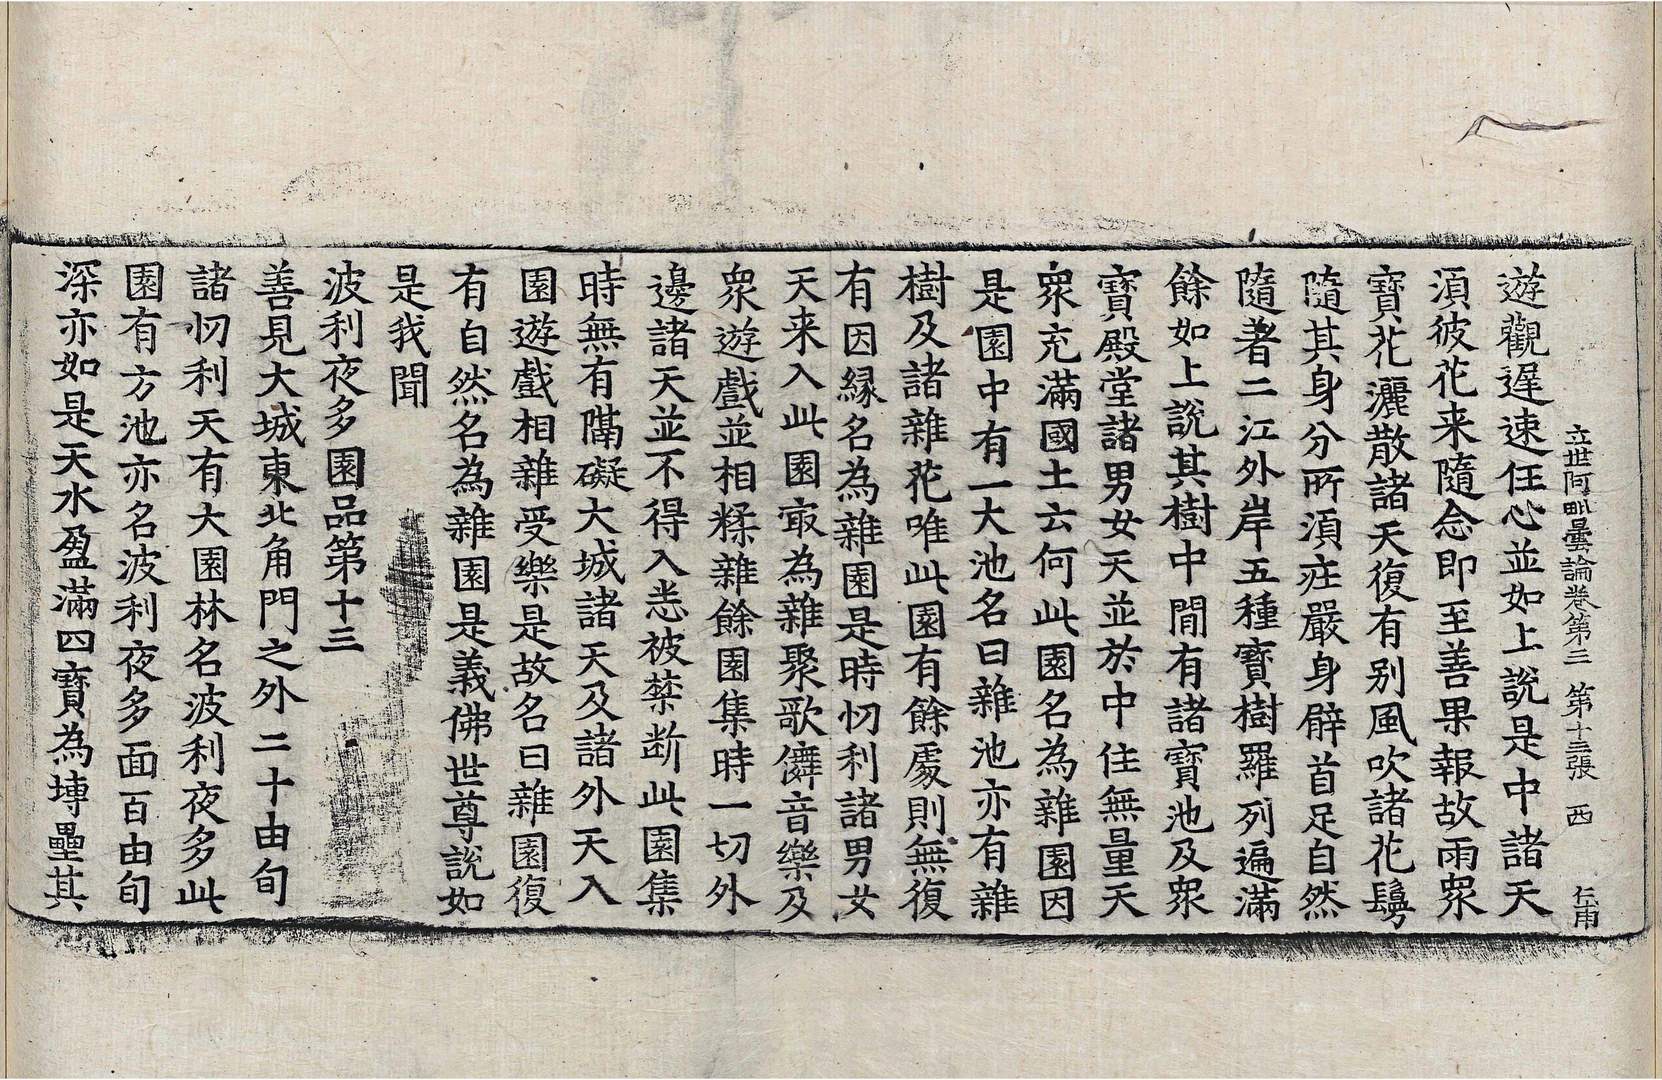 立世阿毗曇論卷第三 第十三張 西 仁甫
遊觀遲速任心並如上說是中諸天
湏彼花来隨念即至善果報故雨眾
寶花灑散諸天復有别風吹諸花鬘
隨其身分所湏庄嚴身臂首足自然
隨著二江外岸五種寶樹羅列遍滿
餘如上說其樹中間有諸寶池及眾
寶殿堂諸男女天並於中住無量天
眾充滿國土云何此園名為雜園因
是園中有一大池名曰雜池亦有雜
樹及諸雜花唯此園有餘處則無復
有因緣名為雜園是時忉利諸男女
天来入此園㝡為雜聚歌儛音樂及
眾遊戲並相糅雜餘園集時一切外
邊諸天並不得入悉被禁断此園集
時無有隔礙大城諸天及諸外天入
園遊戲相雜受樂是故名曰雜園復
有自然名為雜園是義佛世尊說如
是我聞
波利夜多園品第十三
善見大城東北角門之外二十由旬
諸忉利天有大園林名波利夜多此
園有方池亦名波利夜多面百由旬
深亦如是天水盈滿四寶為塼壘其